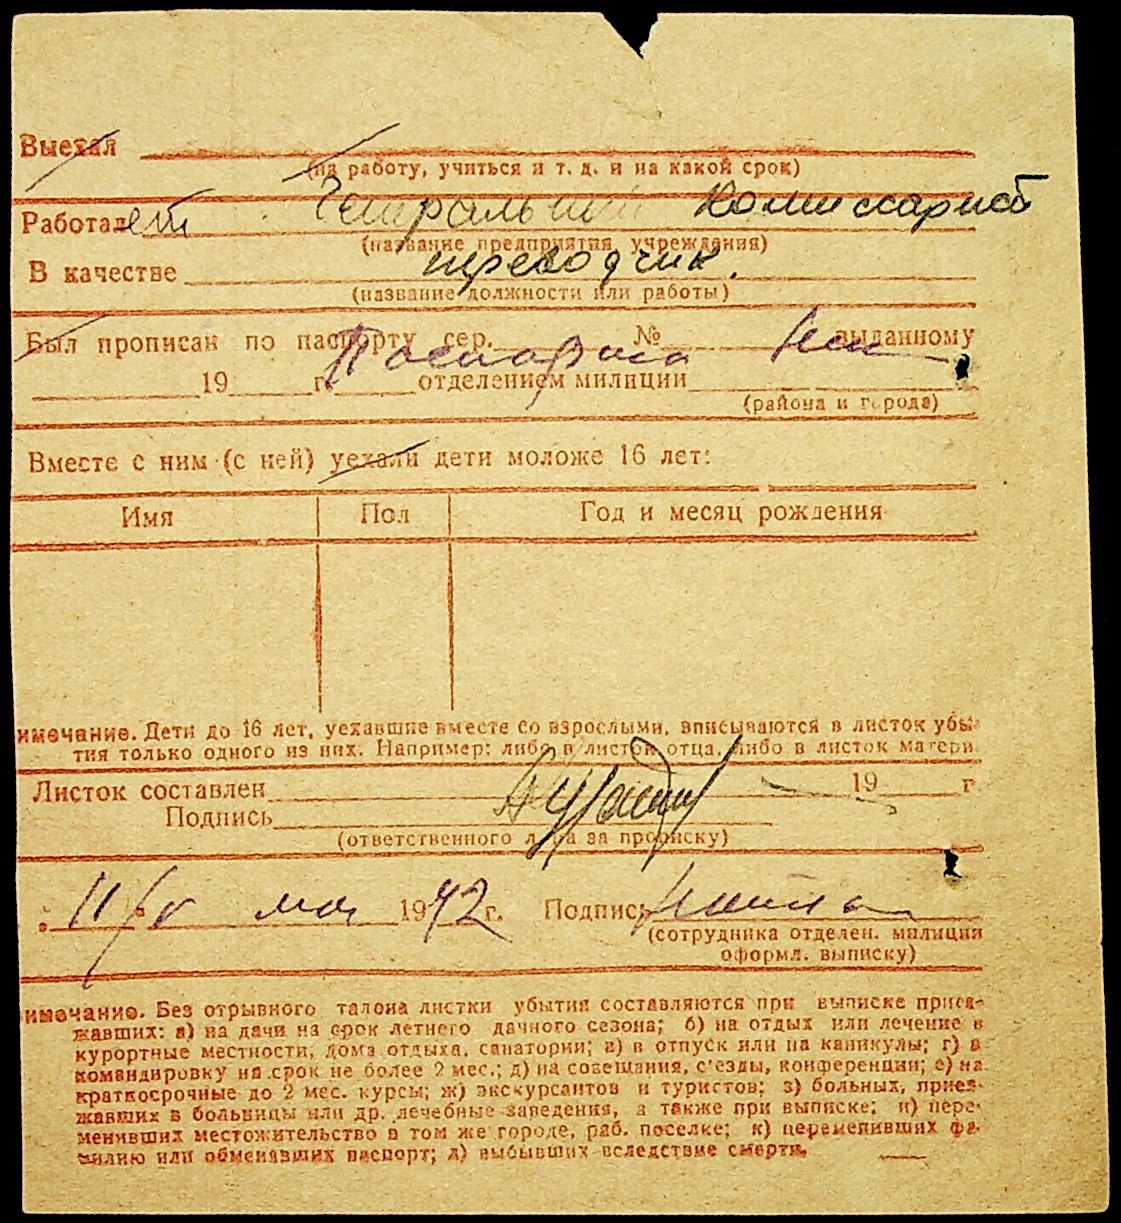 Выехал
(на работу, учиться и т. д. и на какой срок)
Работает Генеральный Комиссариат
(название предприятия, учреждения)
В качестве переводчик.
(название должности или работы)
Был прописан по паспорту сер. № выданному
Паспорта нет
19 г. отделением милиции
(района и города)
Вместе с ним (с ней) уехали дети моложе 16 лет:
Имя Пол Год и месяц рождения
имечание. Дети до 16 лет, уехавшие вместе со взрослыми, вписываются в листок убы-
тия только одного из них. Например: либо в листок отца, либо в листок матери.
Листок составлен 19 г.
Подпись
(ответственного лица за прописку)
11/V мая 1942 г. Подпись
(сотрудника отделен. милиции
оформл. выписку)
имечание. Без отрывного талона листки убытия составляются при выписке приез-
жавших: а) на дачи на срок летнего дачного сезона; б) на отдых или лечение в
курортные местности, дома отдыха, санатории; в) в отпуск или на каникулы; г) в
командировку на срок не более 2 мес.; д) на совещания, с'езды, конференции; е) на
краткосрочные до 2 мес. курсы; ж) экскурсантов и туристов; з) больных, приез-
жавших в больницы или др. лечебные заведения, а также при выписке; и) пере-
менивших местожительство в том же городе, раб. поселке; к) переменивших фа-
милию или обменявших паспорт; л) выбывших вследствие смерти.